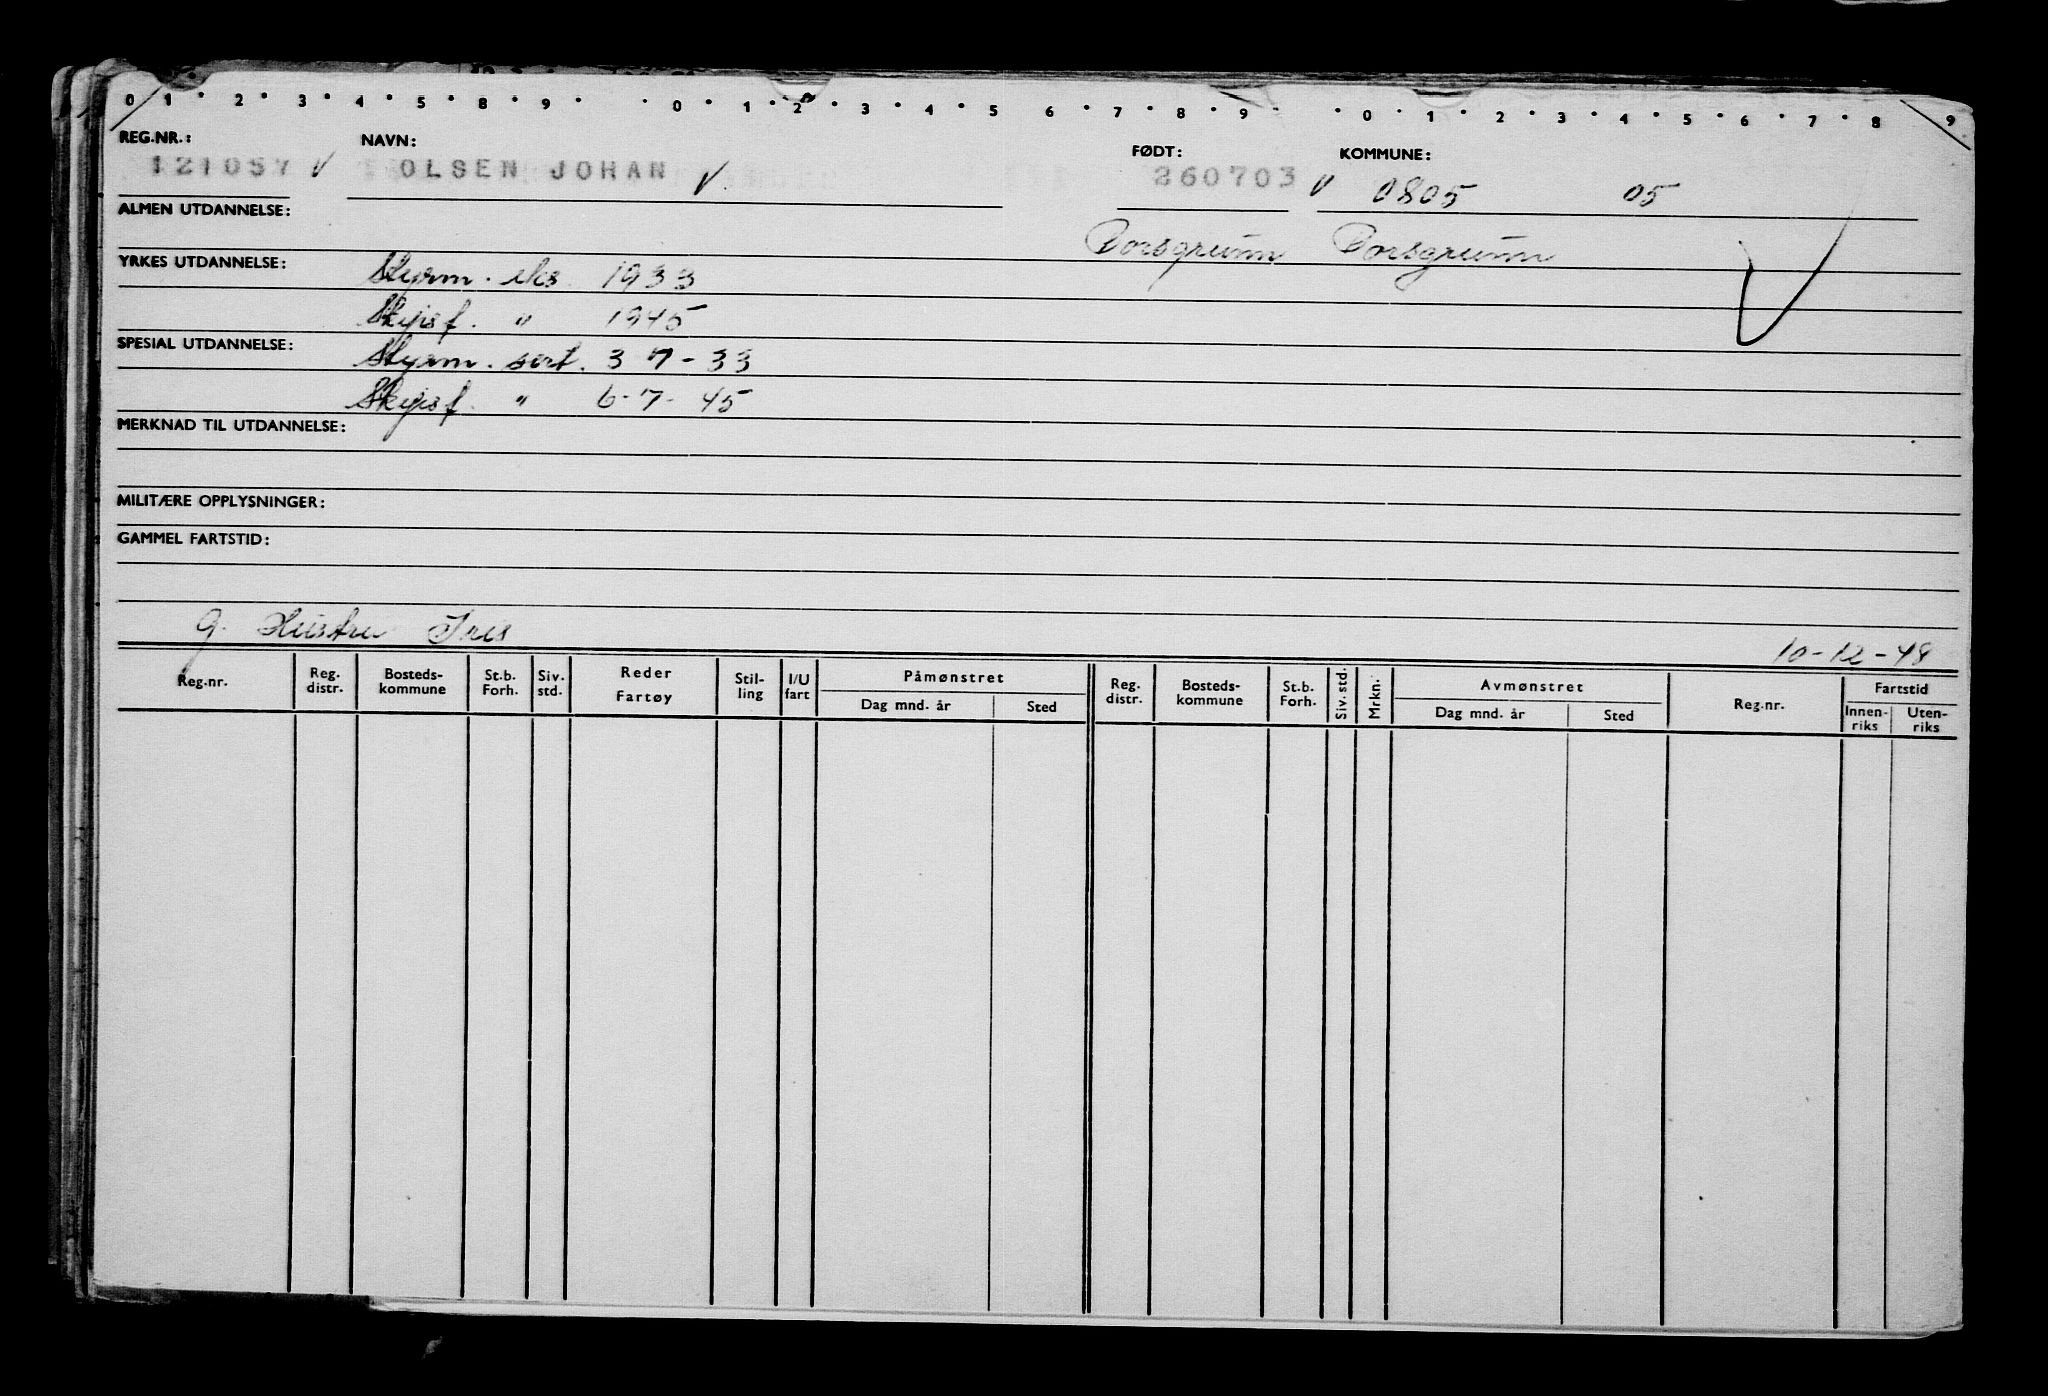 0 1 2 3 4 5 8 9 0 1 2 3 4 5 6 7 8 9 0 1 2 3 4 5 6 7 8 9
REG.NR.: NAVN: FØDT: KOMMUNE:
121057 V OLSEN JOHAN V. 260703 V 0805 05
ALMEN UTDANNELSE: Porsgrunn Porsgrunn
YRKES UTDANNELSE: Styrm. eks. 1933
Skipsf. " 1945
SPESIAL UTDANNELSE: Styrm. sert. 3 7-33
Skipsf. " 6-7-45
MERKNAD TIL UTDANNELSE:
MILITÆRE OPPLYSNINGER:
GAMMEL FARTSTID:
g. Hustru Iris 10-12-48
Reg.nr. Reg. distr. Bosteds-kommune St.b. Forh. Siv. std. Reder Fartøy Stil-ling I/U fart Påmønstret Dag mnd. år Sted Reg. distr. Bosteds-kommune St.b. Forh. Siv. std. Mrkn. Avmønstret Dag mnd. år Sted Reg.nr. Fartstid Innen-riks Uten-riks